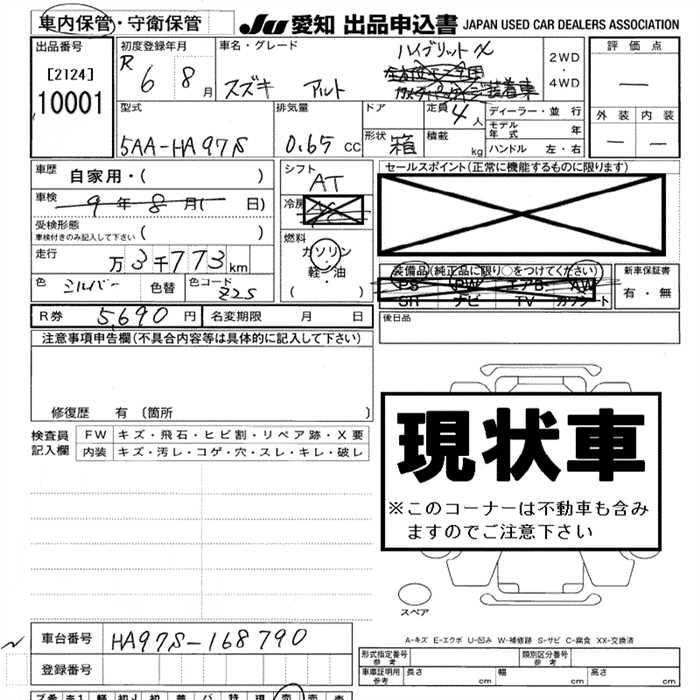 車内保管・守衛保管
JU 愛知 出品申込書 JAPAN USED CAR DEALERS ASSOCIATION
出品番号
[2124]
10001
初度登録年月
R 6 8 月
車名・グレード
スズキ アルト
ハイブリットX
2WD
・
4WD
評 価 点
—
外 装 内 装
— —
型式
5AA-HA97S
排気量
0.65 CC
ドア
形状 箱
定員 4 人
積載 kg
ディーラー・並 行
モデル年式 年
ハンドル 左・右
車歴
自家用・( )
車検
9 年 8 月( 日)
受検形態
車検付きのみ記入して下さい ( )
走行
万 3 千 773 km
色 シルバー 色替 色コード Z2S
シフト
AT
冷房
燃料
ガソリン
・
軽・油
( )
セールスポイント (正常に機能するものに限ります)
装備品(純正品に限り○をつけてください)
PS PW エアB AW
SR ナビ TV カワシート
新車保証書
有・無
R券 5,690 円 名変期限 月 日
後日品
注意事項申告欄 (不具合内容等は具体的に記入して下さい)
修復歴 有 〔箇所 〕
検査員
記入欄
FW キズ・飛石・ヒビ割・リペア跡・X要
内装 キズ・汚レ・コゲ・穴・スレ・キレ・破レ
現状車
※このコーナーは不動車も含み
ますのでご注意下さい
スペア
A-キズ E-エクボ U-凹み W-補修跡 S-サビ C-腐食 XX-交換済
車台番号 HA97S-168790
登録番号
形式指定番号 参考
類別区分番号 参考
車庫証明用 参考 長さ cm 幅 cm 高さ cm